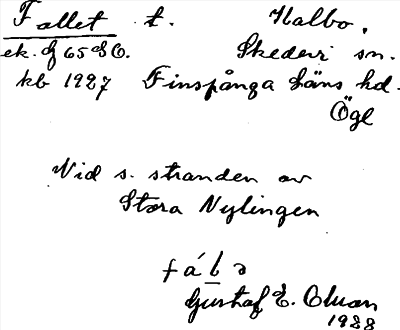 Fallet t. Halbo,
ek. bl 65 SO. Skedevi sn.
kb 1927 Finspånga Läns hd.
Ögl
Vid s. stranden av
Stora Nylingen
Gustaf E.
1928